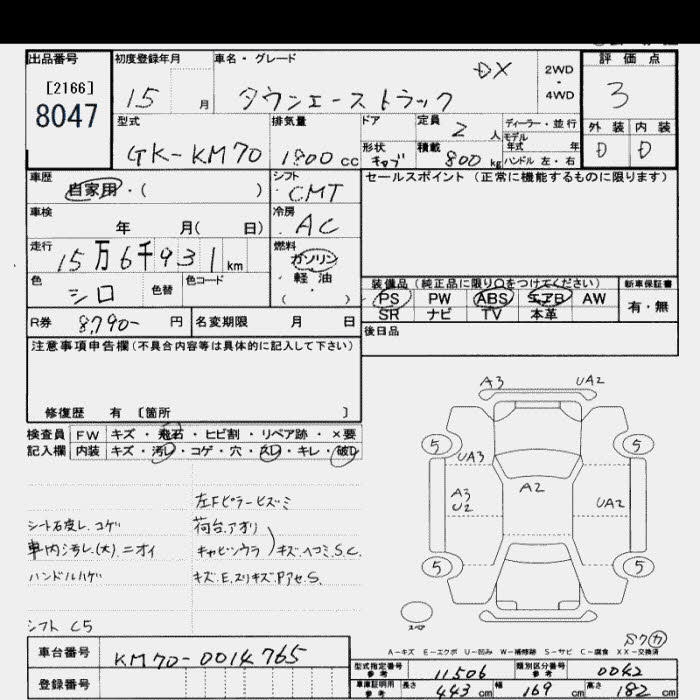 出品番号 初度登録年月 車名・グレード 評価点
[2166] DX 2WD
・
8047 15 月 タウンエーストラック 4WD 3
型式 排気量 ドア 定員 2 人 ディーラー・並行 外装 内装
モデル年式 年
GK-KM70 1800 cc 形状 キャブ 積載 800 kg ハンドル 左・右 D D
車歴 シフト セールスポイント (正常に機能するものに限ります)
自家用・( ) CMT
車検 冷房
年 月( 日) AC
走行 燃料
15万6千931 km ガソリン
色 色替 色コード ・軽油・
シロ ( )
装備品 (純正品に限り○をつけてください) 新車保証書
PS PW ABS エアB AW 有・無
SR ナビ TV 本革
R券 8790- 円 名変期限 月 日
後日品
注意事項申告欄(不具合内容等は具体的に記入して下さい)
修復歴 有 〔箇所 〕
検査員 FW キズ・飛石・ヒビ割・リペア跡・×要
記入欄 内装 キズ・汚レ・コゲ・穴・スレ・キレ・破レ
A3 UA2
5 5
UA3
A3
U2 A2 UA2
5 5
スペア
左Fピラーヒズミ
シート石皮レ.コゲ 荷台.アオリ
車内汚レ.(大).ニオイ キャビンウラ キズ.ヘコミ.S.C.
ハンドルハゲ キズ.E.スリキズ.Pアセ.S.
シフト C5
A-キズ E-エクボ U-凹み W-補修跡 S-サビ C-腐食 XX-交換済
車台番号 KM70-0014765
登録番号
型式指定番号 参考 11506 類別区分番号 参考 0042
車庫証明用 参考 長さ 443 cm 幅 169 cm 高さ 182 cm